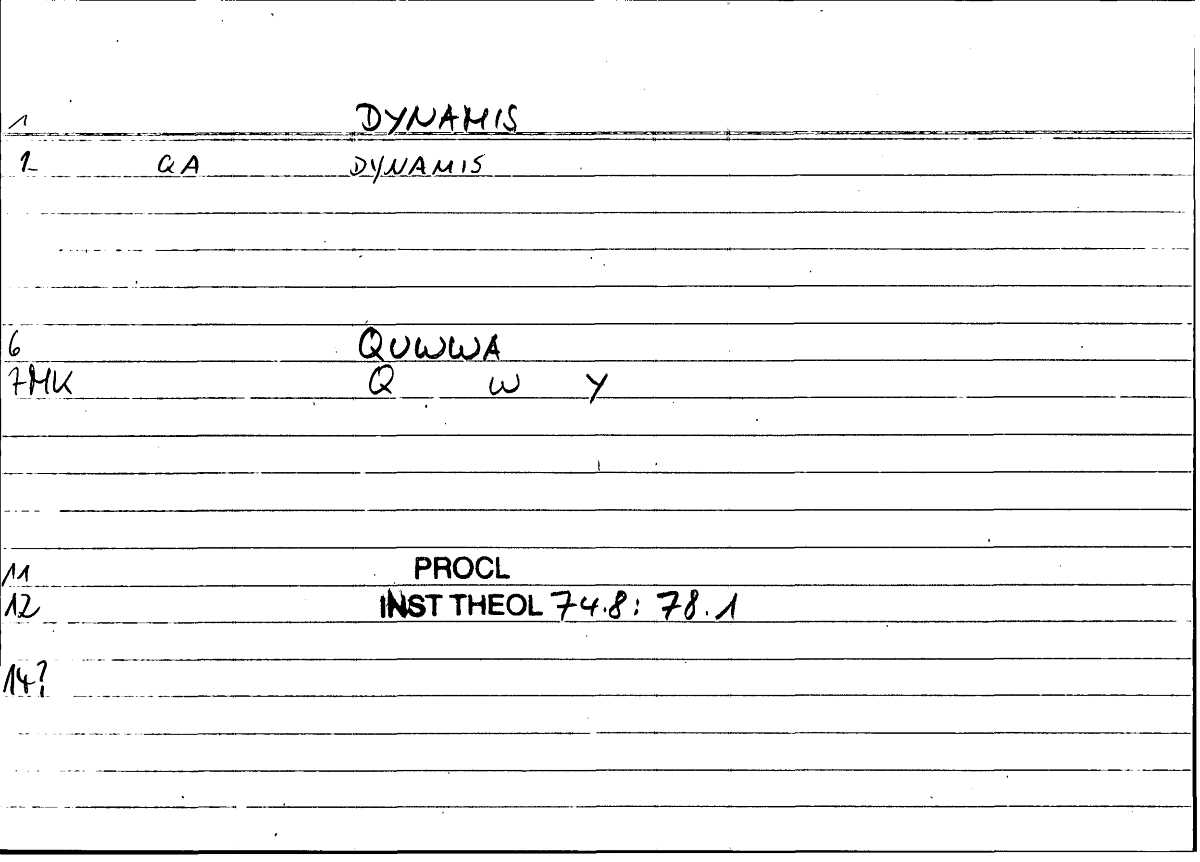 1 DYNAMIS
2 QA DYNAMIS
6 QUWWA
7MK Q W Y
11 PROCL
12 INST THEOL 74.8: 78.1
14?